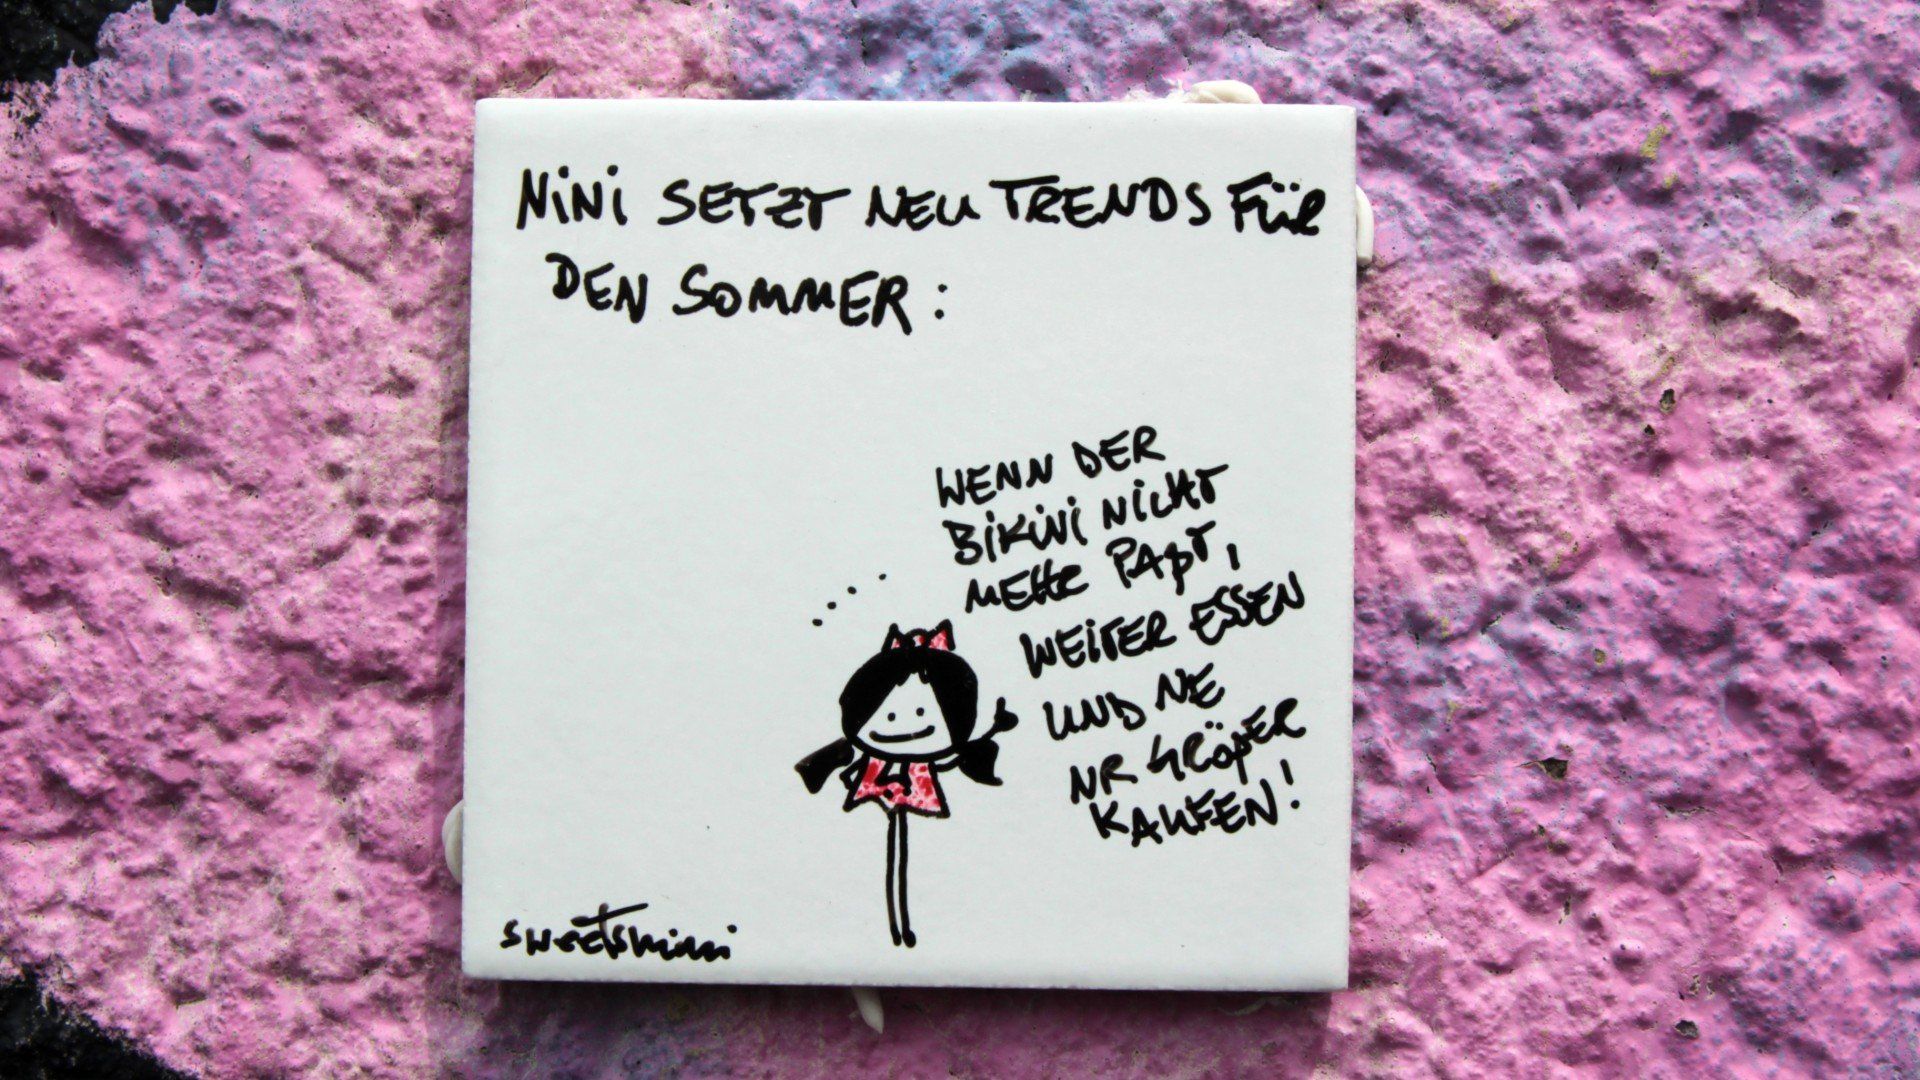 NINI SETZT NEU TRENDS FÜR
DEN SOMMER:
WENN DER
BIKINI NICHT
MEHR PAßT,
WEITER ESSEN
UND NE
NR GRÖßER
KAUFEN!
sweetsnini